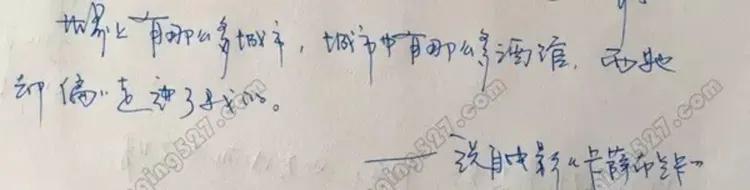 世界上有那么多城市，城市中有那么多酒馆，而她
却偏偏走进了我的。
——说自电影《卡萨布兰卡》
qing527.com